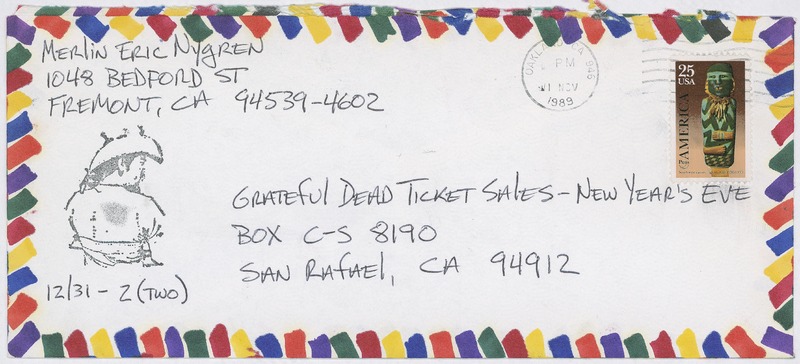 Merlin Eric Nygren
1048 Bedford St
Fremont, CA 94539-4602
PM
1 NOV
1989
25
USA
AMERICA
Grateful Dead Ticket Sales - New Year's Eve
Box C-S 8190
San Rafael, CA 94912
12/31 - 2 (two)